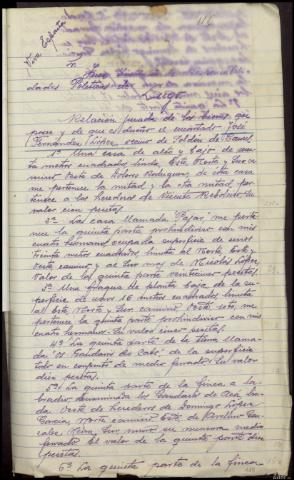 116
Viva España!
Juez Civil de Responsabili-
dades Politicas de
Lugo.
Relación jurada de los bienes que
posee y de que es dueño el encartado José
Fernández López, vecino de
1ª Una casa de alto y bajo de
metros cuadrados, linda, Este Norte y Sur ca-
mino, Oeste de Dolores Rodriguez, de esta casa
me pertenece la mitad y la otra mitad per-
tenece a los herederos de
valor cien pesetas.
2ª Una casa llamada Pajar, me perte-
nece la quinta parte proindiviso con mis
cuatro hermanos ocupa superficie de unos
treinta metros cuadrados, linda al Norte Este y
Oeste camino y al Sur más de Nicolás López,
valor de la quinta parte veinticinco pesetas.
3ª Una fragua de planta baja de la su-
perficie de unos 16 metros cuadrados linda
al Este Norte y Sur camino, Oeste me
pertenece la quinta parte proindiviso con mis
cuatro hermanos. Su valor cinco pesetas.
4ª La quinta parte de la tierra llama-
da "os do Cabo" de la superficie
todo en conjunto de medio ferrado. Su valor
diez pesetas.
5ª La quinta parte de la finca a la-
bradío denominada de
Oeste de herederos de Domingo López
Garcia, Norte camino Este de
Sur muro su mensura medio
ferrado. El valor de la quinta parte diez
pesetas.
6ª La quinta parte de la finca